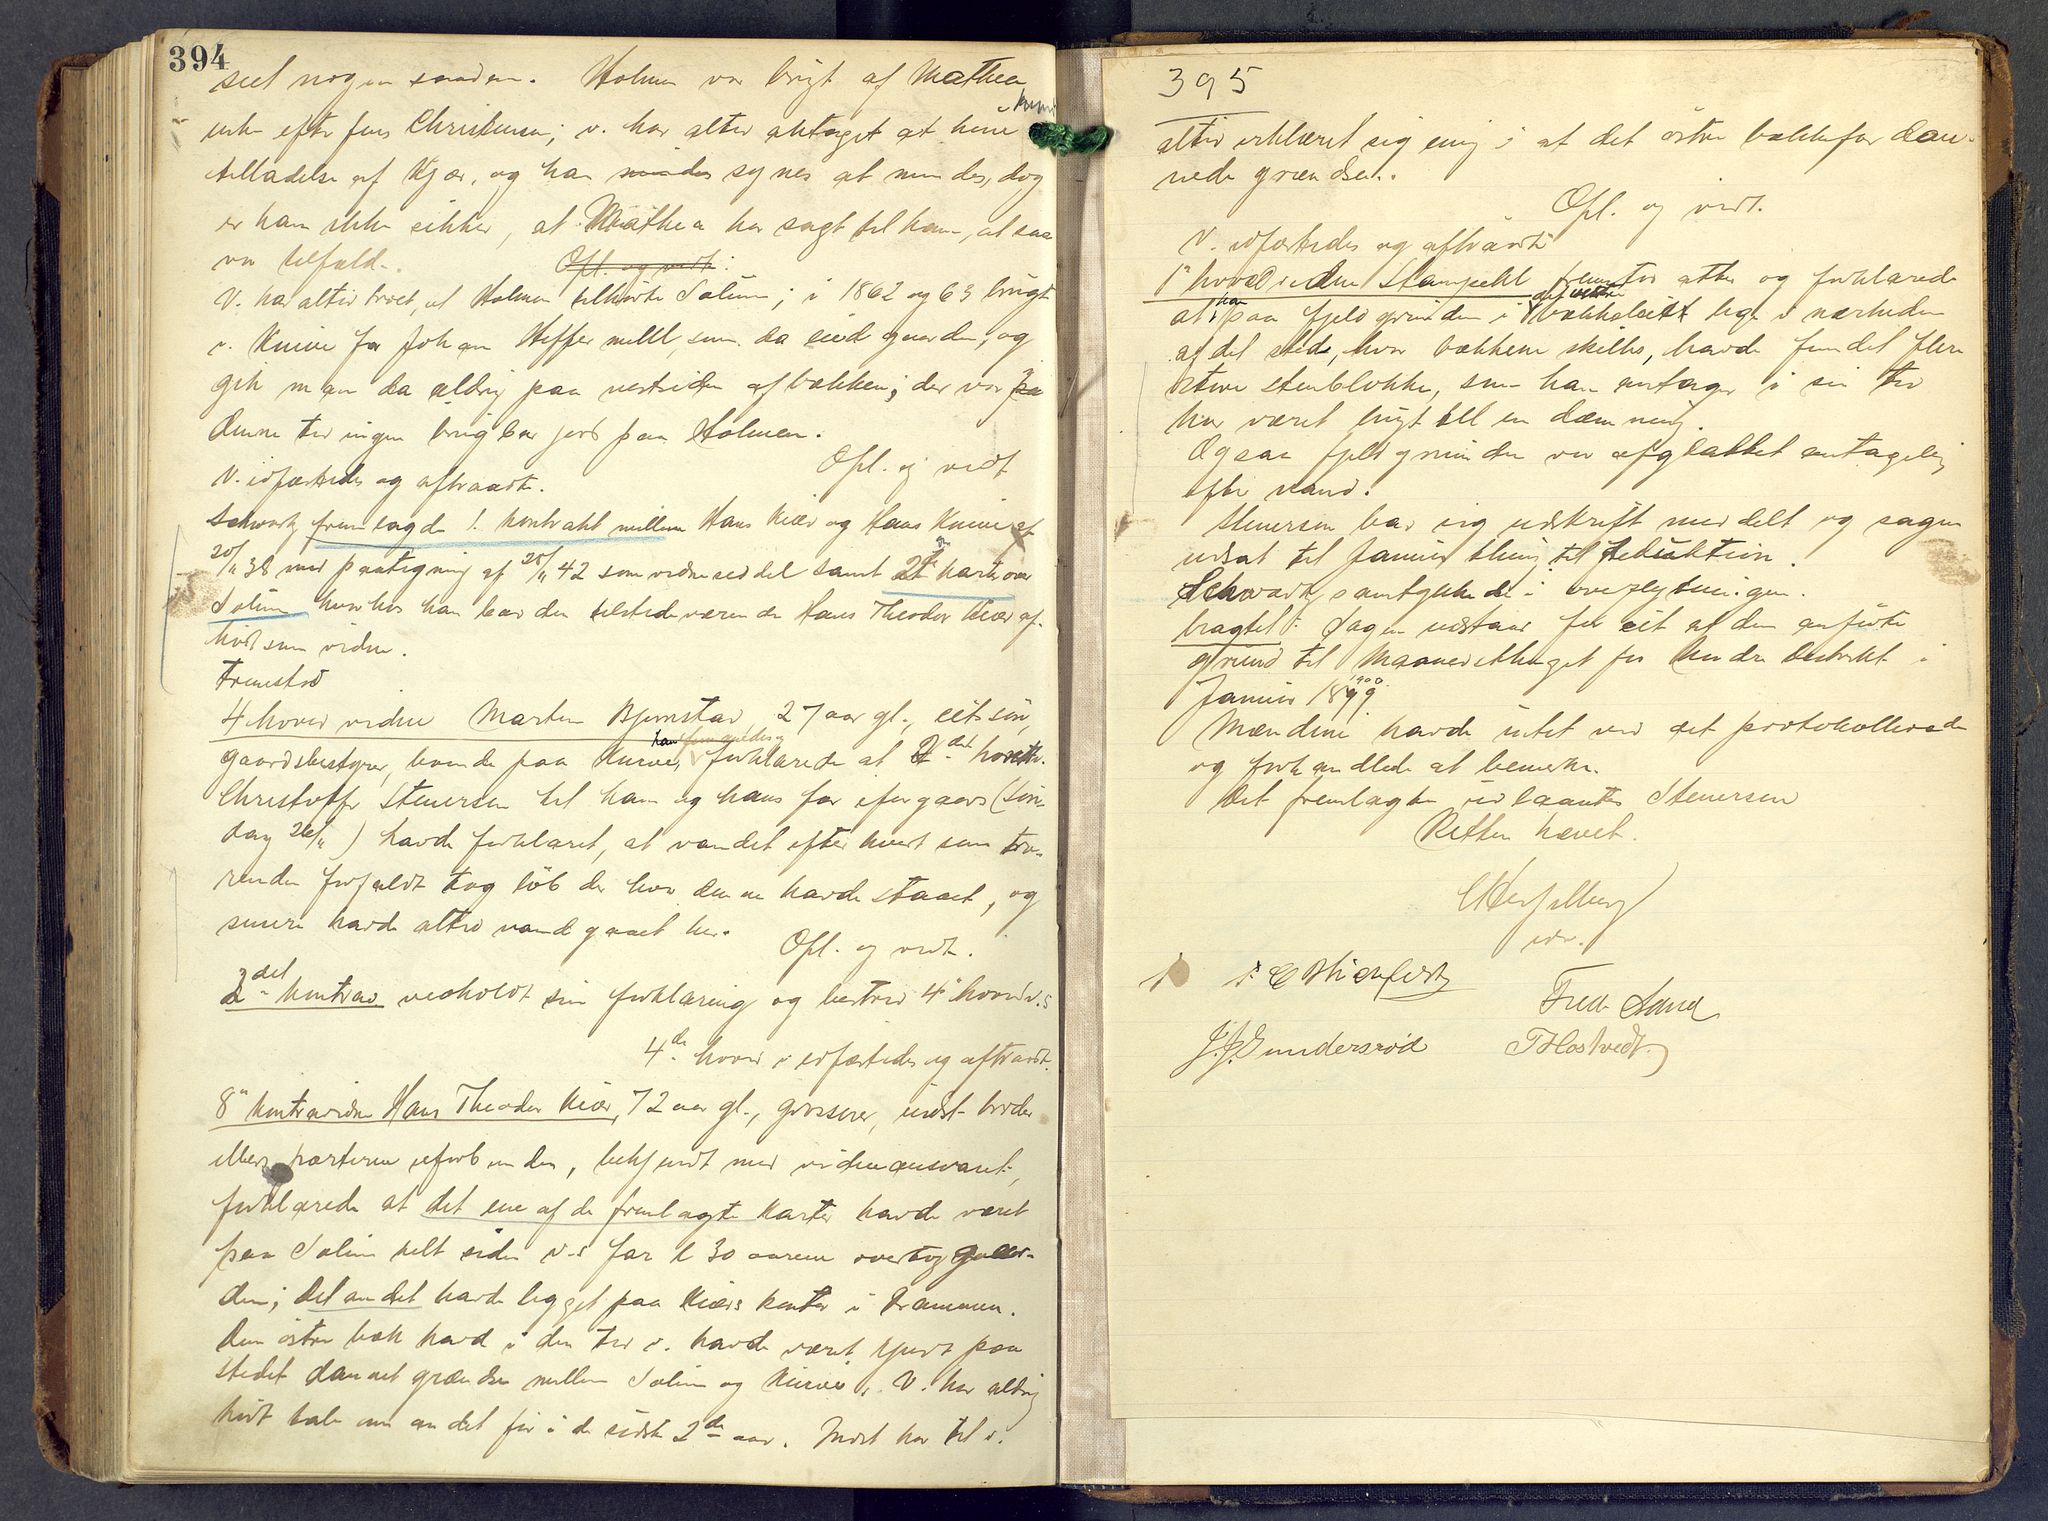 394
seet nogen saadan. Holmen var brugt af Mathea
enke efter Jens Christensen; v. har altid antaget at hun
tilladelse af Kjær, og han mindes synes at mindes, dog
er han ikke sikker, at Mathea har sagt til ham, at saa
var tilfæld.. Opl. og vedt.
V. har altid troet, at Holmen tilhørte Solum; i 1862 og 63 brugte
v. Kurve for Johan Heffermehl, som da eied gaarden, og
gik man da aldrig paa vestsiden af bækken; der var paa
denne tid ingen brugbar jord paa Holmen.
Opl. og vedt
V. edfæstedes og aftraadte.
Schwartz fremlagde 1. kontrakt mellem Hans Kiær og Hans Kurve af
20/11 38 med paategning af 20/11 42 som vidneseddel samt 2de karter over
Solum hvorhos han bad den tilstedeværende Hans Theodor Kiær af-
hørt som vidne.
Fremstod
4 hovedvidne Marten Bjørnstad, 27 aar gl., cits søn,
gaardsbestyrer, boende paa Kurve, forklarede at 2det kontr.
Christoffer Steversen til ham og hans far ifør gaars (Søn-
dag 26/11) havde forklaret, at vandet efter hvert som tra-
renden forfaldt tog løb der hvor denne havde staaet, og
senere havde altid vand gaaet her.
Opl. og vedt.
2det kontrav. vedholdt sin forklaring og bestred 4de hovedv.s
4de hovedv. edfæstedes og aftraadt.
8de kontravidne Hans Theodor Kiær, 72 aar gl., grosserer, indst. broder
ellers parterne uforbunden, bekjendt med vidneansvaret,
forklarede at det ene af de fremlagte karter havde været
paa Solum helt siden v.s far i 30 aarene overtog gaar-
den; det andet havde ligget paa Kiærs kontor i Drammen.
Den østre bæk havde i den tid v. havde været kjendt paa
stedet dannet grændse mellem Solum og Kurve. V. har aldrig
hørt tale om andet før i de sidste 2de aar. Indst. har til v.
395
altid erklæret sig enig i at det østre bækkefar dan-
nede grændsen.
Opl. og vedt.
V. edfæstedes og aftraadte
1ste hovedvidne Stampehl fremstod atter og forklarede
at han paa fjeldgrunden i det vestre bækkeleiet lige i nærheden
af det sted, hvor bækkene skilles, havde fundet flere
store stenblokke, som han antager i sin tid
har været brugt til en dæmning.
Ogsaa fjeldgrunden var afglattet antagelig
efter vand.
Steversen bad sig udskrift meddelt og sagen
udsat til Januar thing til deduktion.
Schwartz samtykkede i overflytningen.
bragtes: Sagen udstaar for cit af den anførte
grund til Maanedsthinget for Andre Distrikt i
Januar 1899 1900
Mændene havde intet ved det protokollerede
og forhandlede at bemerke.
Det fremlagte udlaantes Steversen
Retten hævet.
edv.
Fredr. Sand
J. J. Gundersrød T Hostvedt